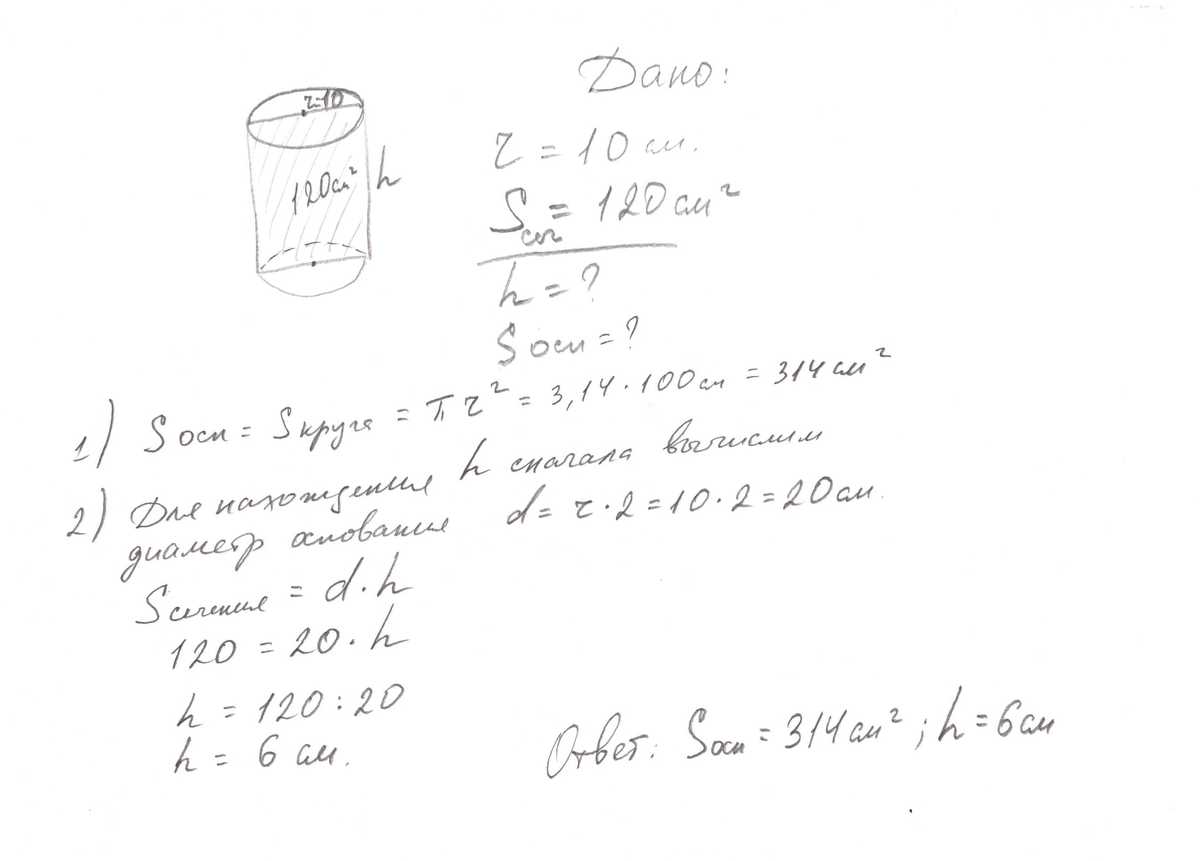 Дано:
r=10
120см² h
r = 10 см.
Sсеч = 120 см²
h = ?
Sосн = ?
1) Sосн = Sкруга = πr² = 3,14 · 100см = 314 см²
2) Для нахождения h сначала вычислим
диаметр основания d = r · 2 = 10 · 2 = 20 см.
Sсечения = d · h
120 = 20 · h
h = 120 : 20
h = 6 см.
Ответ: Sосн = 314 см² ; h = 6 см